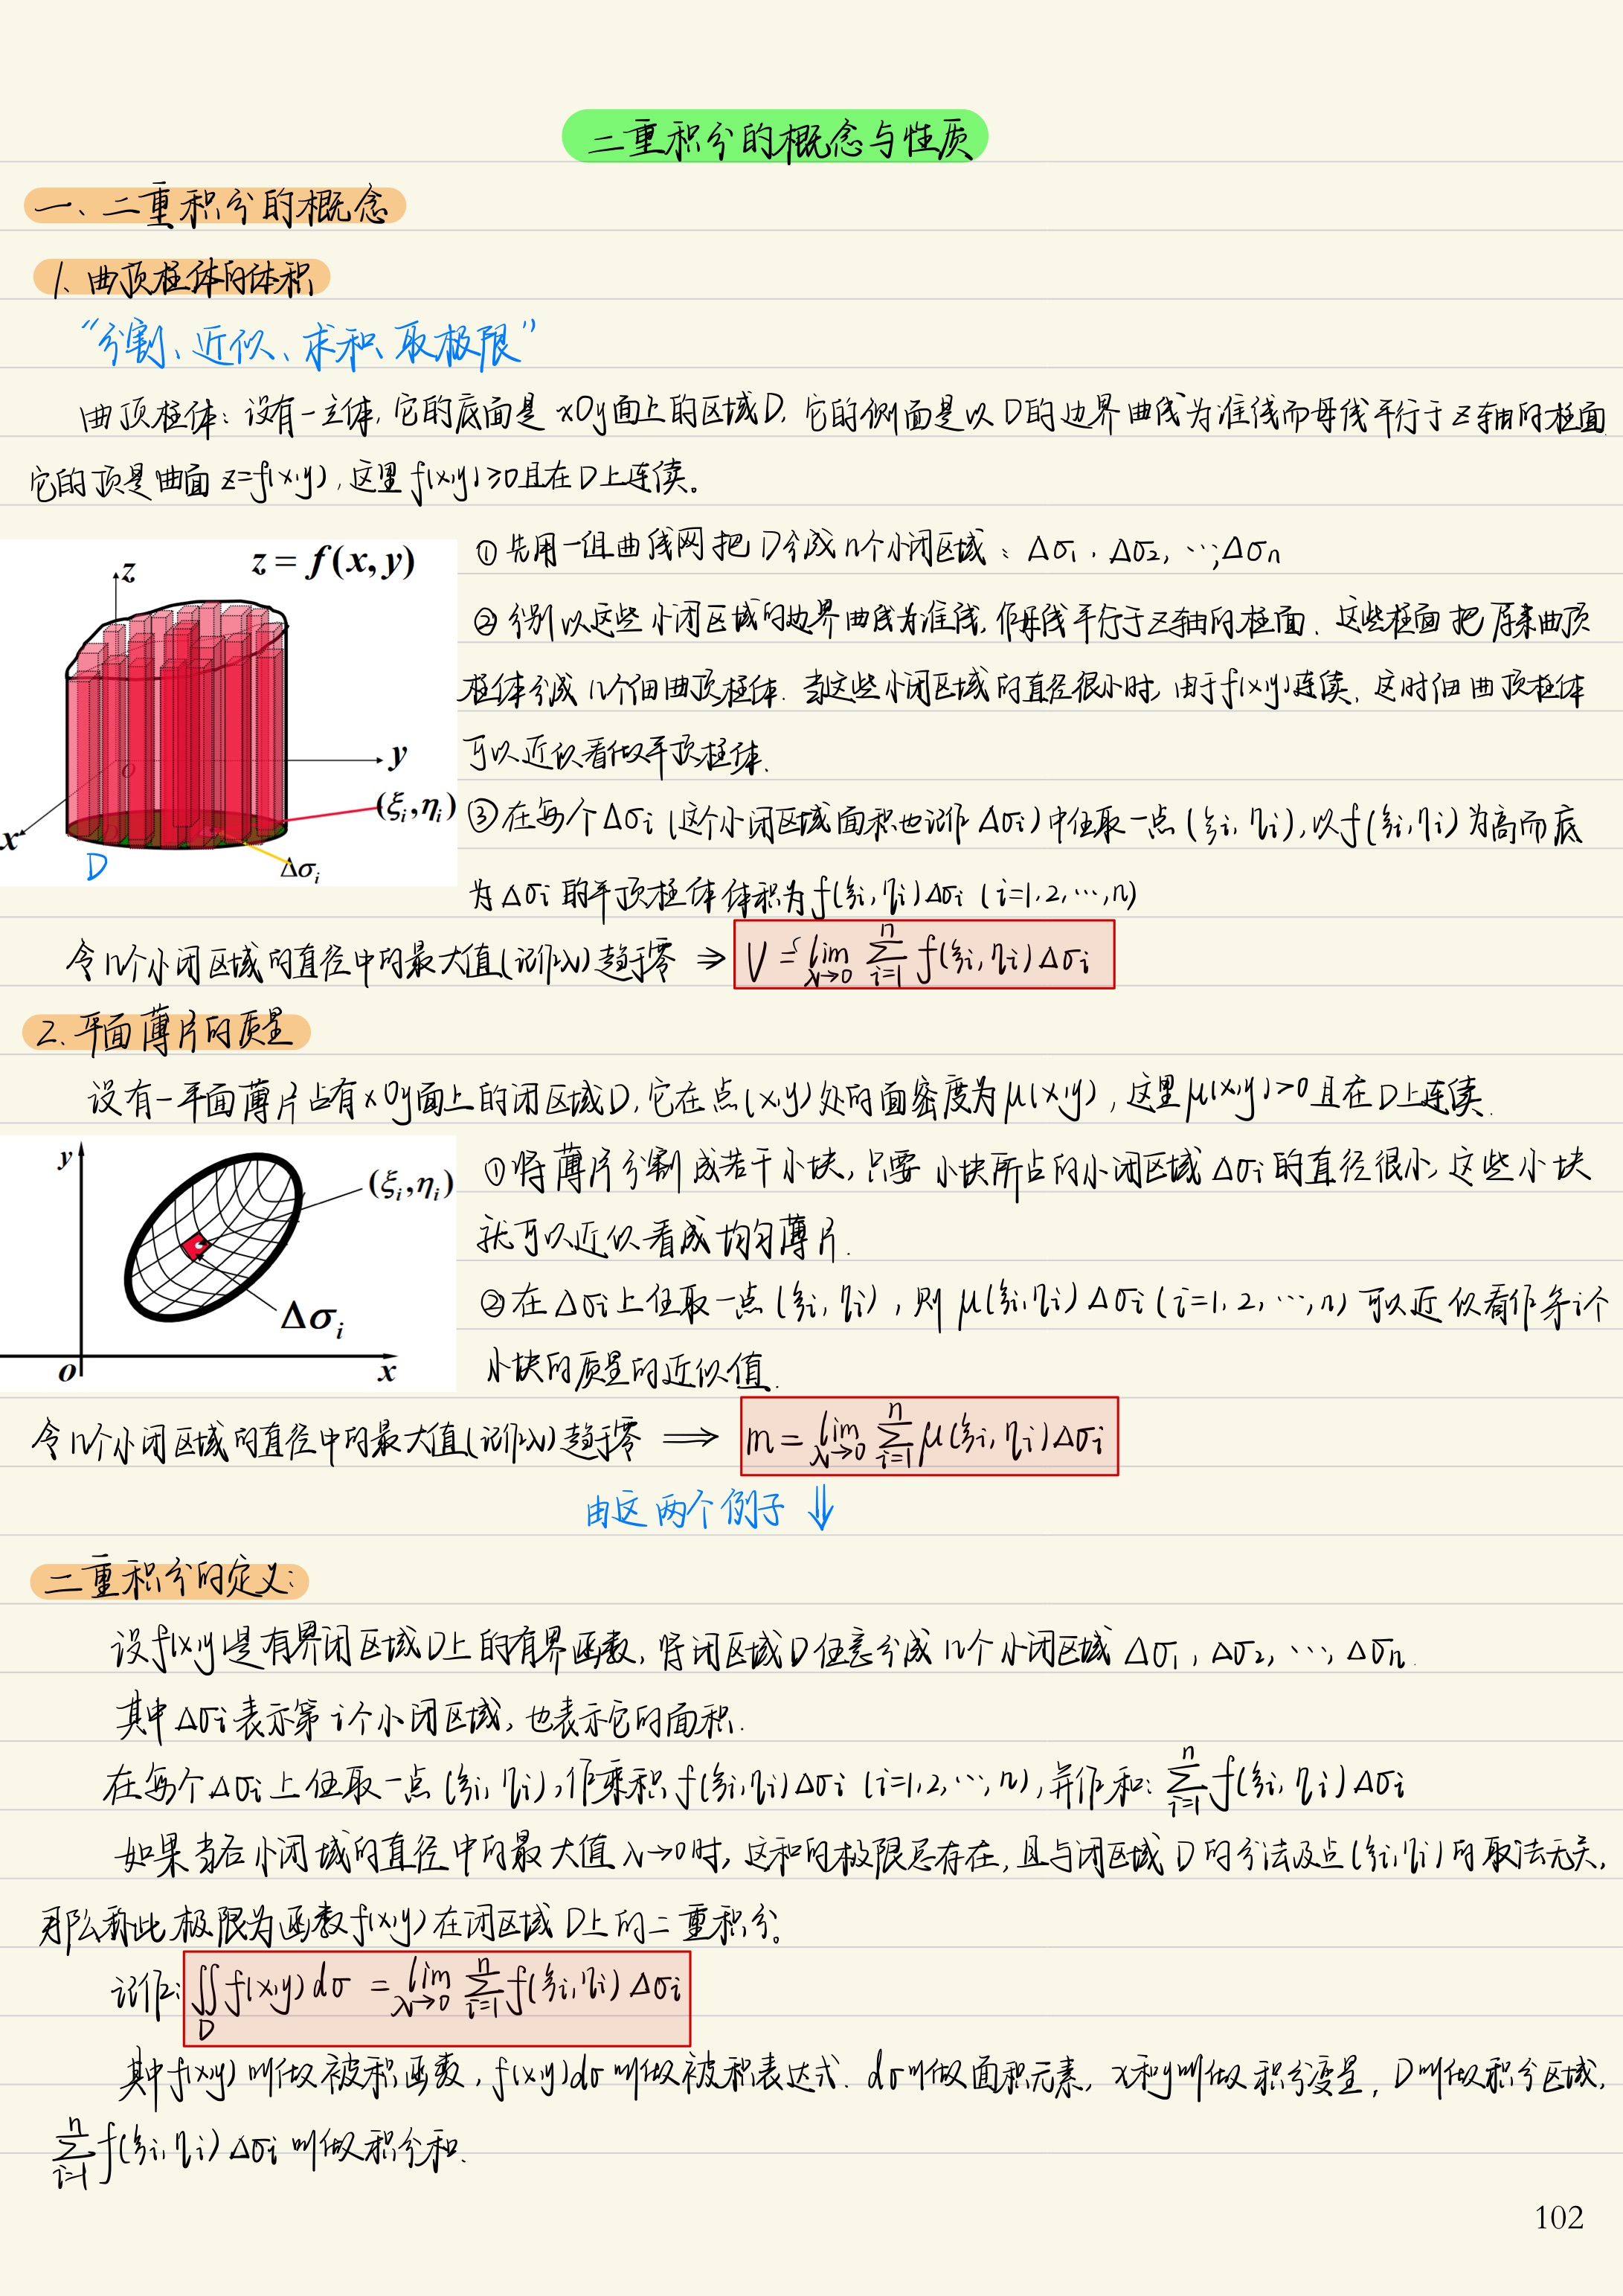 二重积分的概念与性质
一、二重积分的概念
1、曲顶柱体的体积
“分割、近似、求和、取极限”
曲顶柱体：设有一立体，它的底面是 xOy面上的区域D，它的侧面是以D的边界曲线为准线而母线平行于z轴的柱面，
它的顶是曲面 z=f(x,y)，这里 f(x,y)≥0且在D上连续。
z = f(x, y)
z
y
x
O
(ξi,ηi)
D
Δσi
① 先用一组曲线网把D分成n个小闭区域：Δσ1，Δσ2，…，Δσn
② 分别以这些小闭区域的边界曲线为准线，作母线平行于z轴的柱面，这些柱面把原来曲顶
柱体分成n个细曲顶柱体．当这些小闭区域的直径很小时，由于f(x,y)连续，这时细曲顶柱体
可以近似看做平顶柱体．
③ 在每个Δσi (这个小闭区域面积也记作Δσi) 中任取一点 (ξi, ηi)，以f(ξi, ηi) 为高而底
为Δσi 的平顶柱体体积为f(ξi, ηi)Δσi (i=1,2,…,n)
令n个小闭区域的直径中的最大值(记作λ)趋于零 ⇒ V = lim λ→0 ∑ i=1 n f(ξi, ηi)Δσi
2. 平面薄片的质量
设有一平面薄片占有xOy面上的闭区域D，它在点(x,y)处的面密度为μ(x,y)，这里μ(x,y)>0且在D上连续．
y
(ξi,ηi)
Δσi
o
x
① 将薄片分割成若干小块，只要小块所占的小闭区域Δσi的直径很小，这些小块
就可以近似看成均匀薄片．
② 在Δσi上任取一点(ξi, ηi)，则μ(ξi,ηi)Δσi (i=1,2,…,n) 可以近似看作第i个
小块的质量的近似值．
令n个小闭区域的直径中的最大值(记作λ)趋于零 ⟹ m = lim λ→0 ∑ i=1 n μ(ξi, ηi)Δσi
由这两个例子 ⇓
二重积分的定义：
设f(x,y)是有界闭区域D上的有界函数，将闭区域D任意分成n个小闭区域Δσ1，Δσ2，…，Δσn．
其中Δσi表示第i个小闭区域，也表示它的面积．
在每个Δσi上任取一点(ξi, ηi)，作乘积f(ξi,ηi)Δσi (i=1,2,…,n)，并作和：∑ i=1 n f(ξi, ηi)Δσi
如果当各小闭域的直径中的最大值λ→0时，这和的极限总存在，且与闭区域D的分法及点(ξi,ηi)的取法无关，
那么称此极限为函数f(x,y)在闭区域D上的二重积分。
记作：∬D f(x,y)dσ = lim λ→0 ∑ i=1 n f(ξi,ηi)Δσi
其中f(x,y)叫做被积函数，f(x,y)dσ叫做被积表达式．dσ叫做面积元素，x和y叫做积分变量，D叫做积分区域，
∑ i=1 n f(ξi, ηi)Δσi 叫做积分和．
102